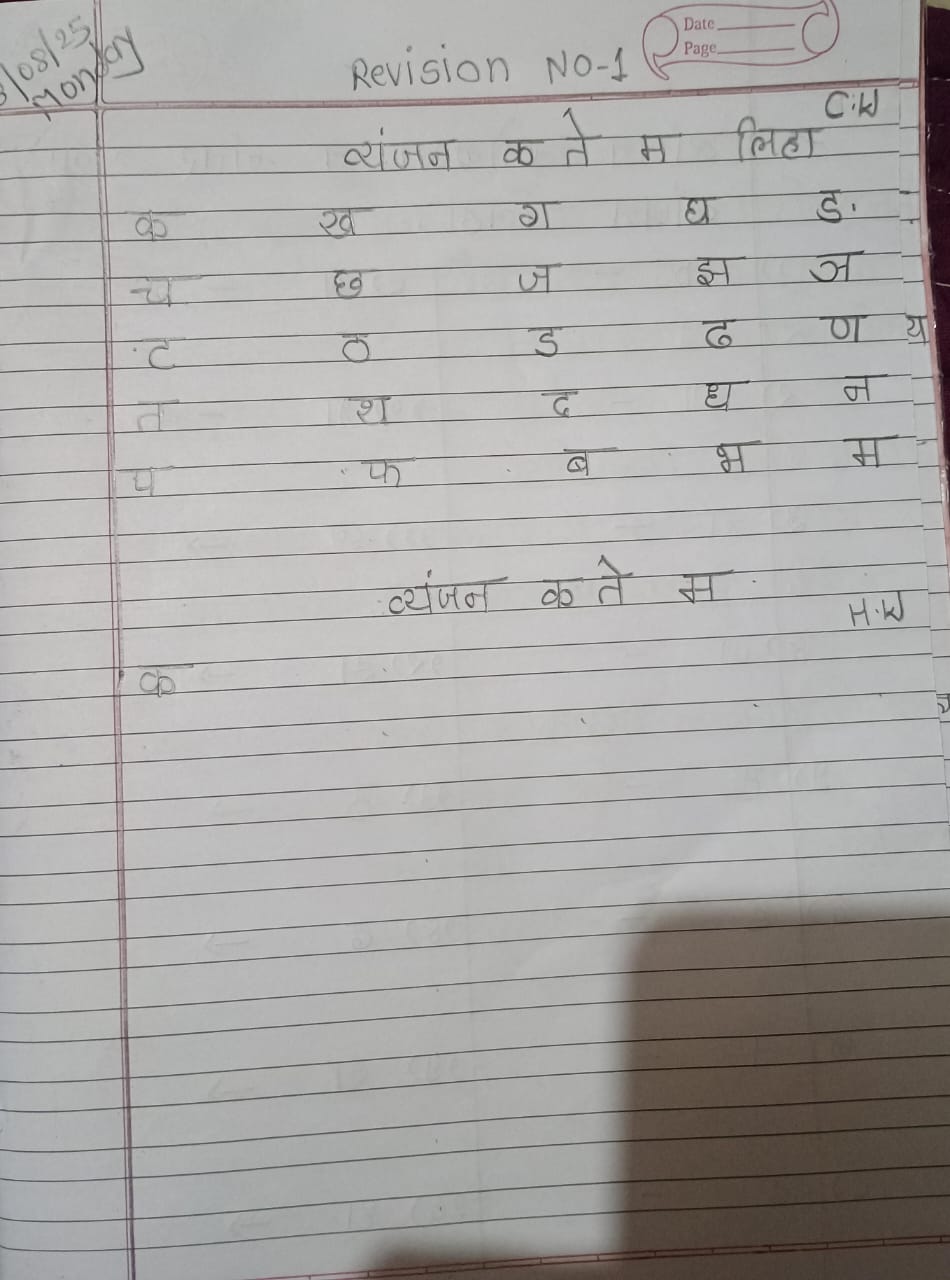 /08/25
Monday
Revision NO-1
Date
Page
C.W
व्यंजन क ते म लिहा
क ख ग घ ङ
च छ ज झ ञ
ट ठ ड ढ ण य
त थ द ध न
प फ ब भ म
व्यंजन क ते म
H.W
क